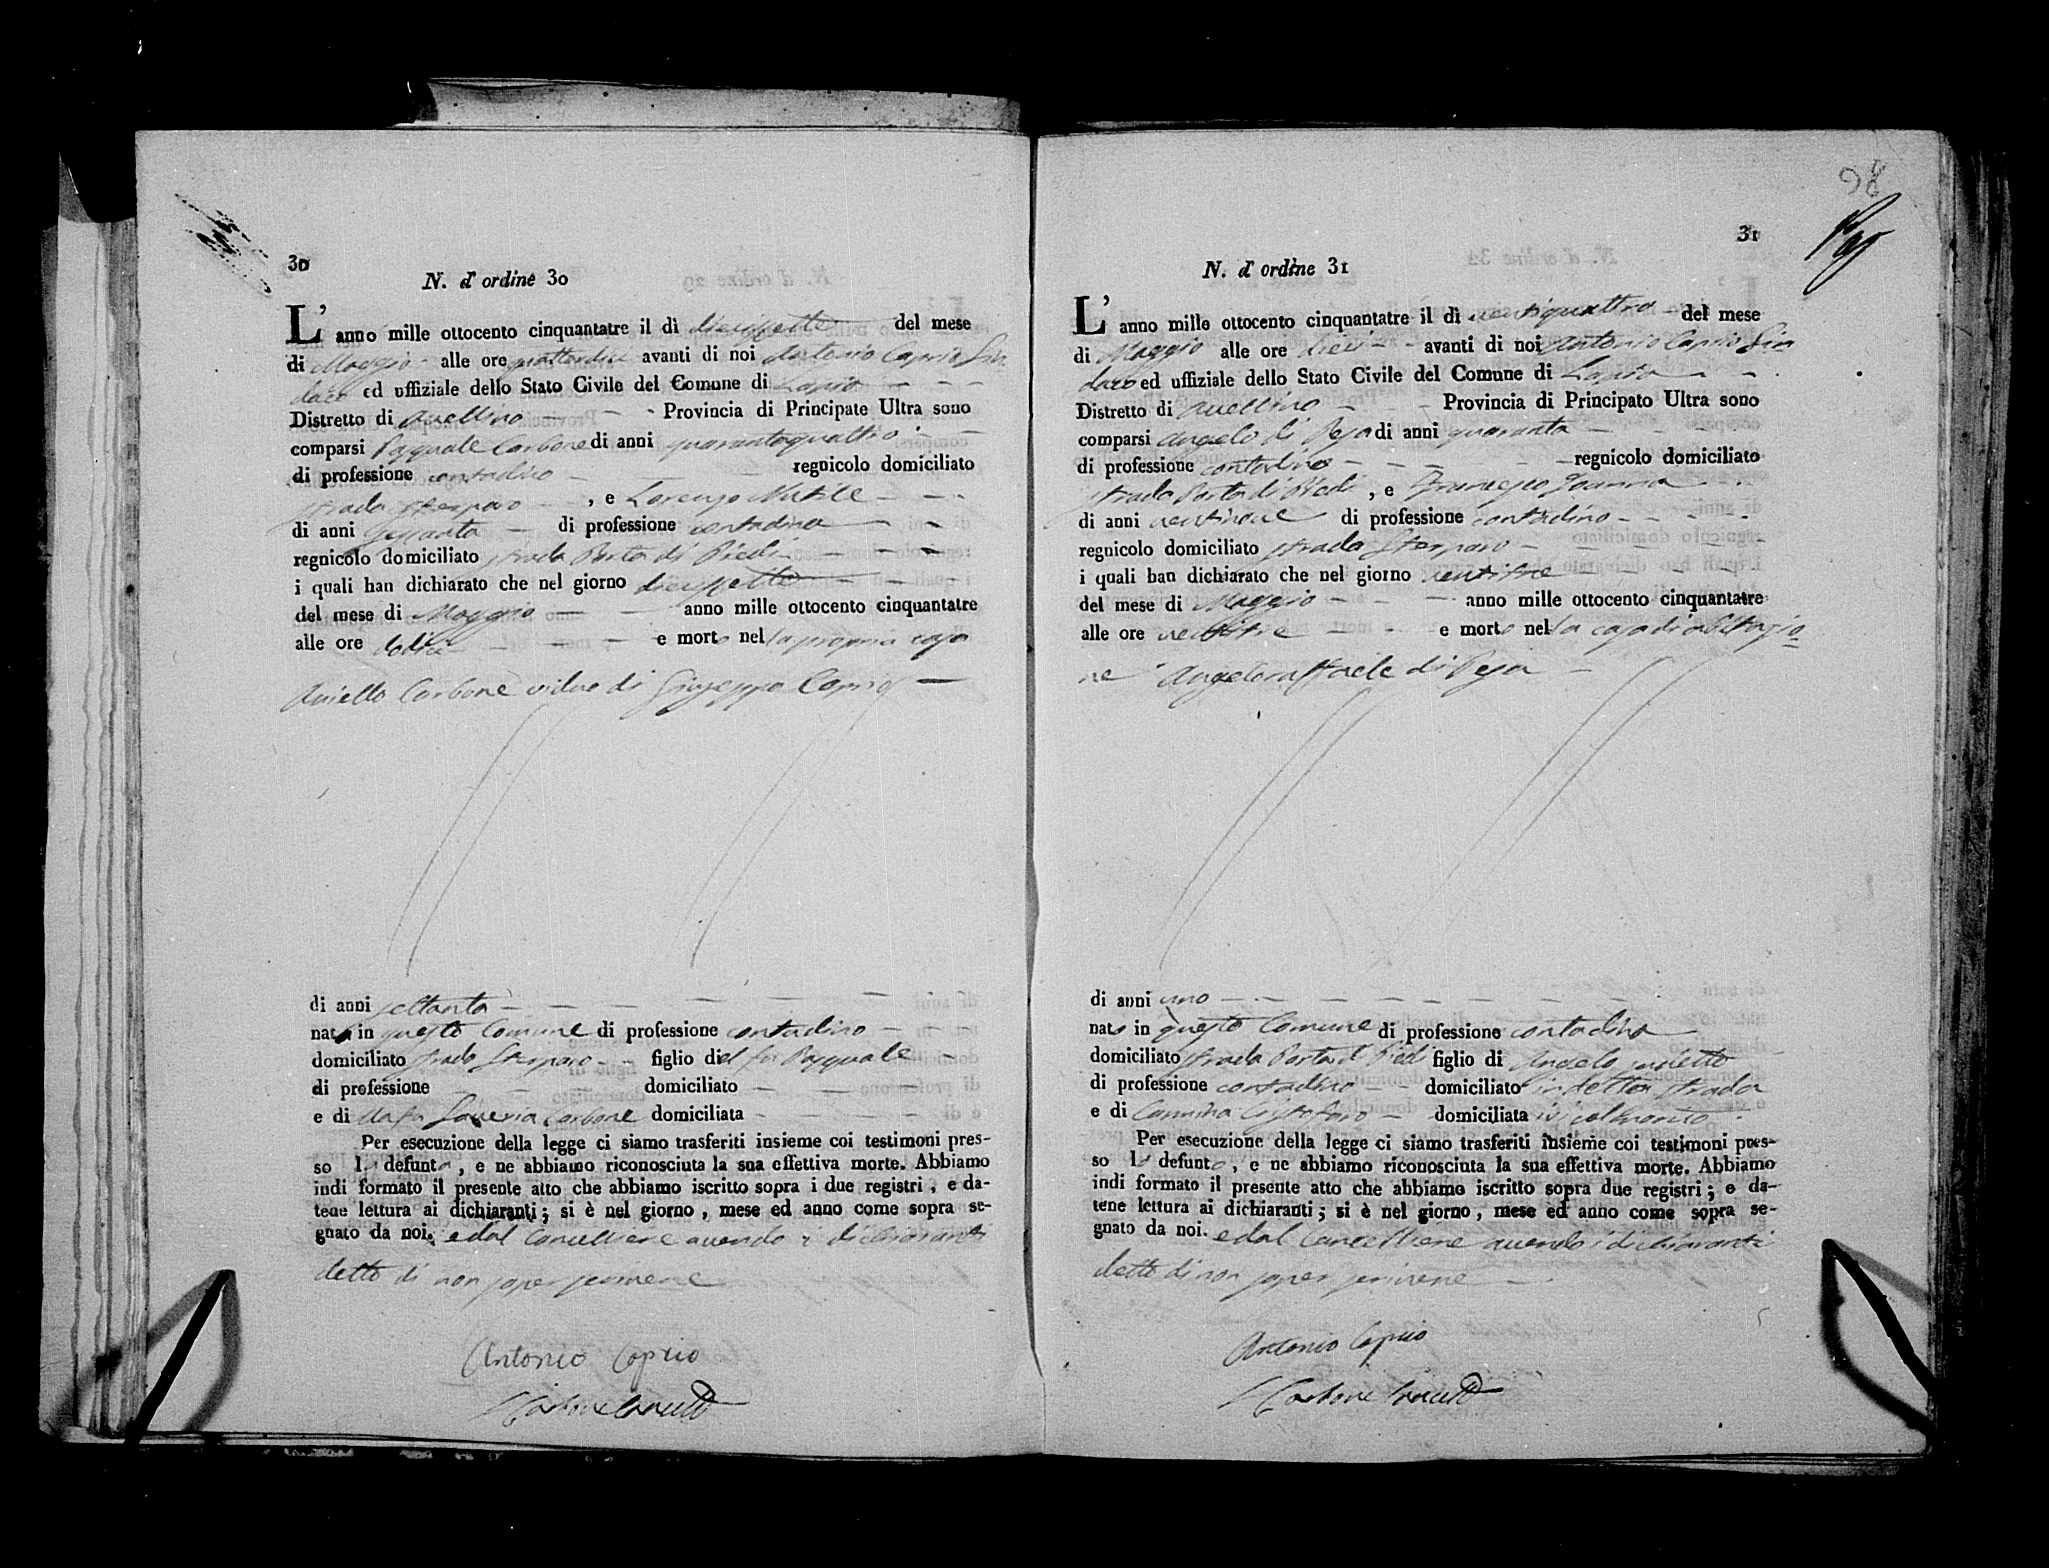 30
N. d' ordine 30
L' anno mille ottocento cinquantatre il dì diecissette del mese
di Maggio alle ore quattordici avanti di noi Antonio Caprio Sin
daco ed uffiziale dello Stato Civile del Comune di Lapio
Distretto di Avellino Provincia di Principate Ultra sono
comparsi Pasquale Carbone di anni quarantaquattro
di professione contadino regnicolo domiciliato
strada , e Lorenzo
di anni di professione contadino
regnicolo domiciliato strada Porta di Piedi
i quali han dichiarato che nel giorno diecissette
del mese di Maggio anno mille ottocento cinquantatre
alle ore dodici e morto nella propria casa
Aniello Carbone viduo di Giuseppa Caprio
di anni settanta
nato in questo Comune di professione contadino
domiciliato strada figlio del fu Pasquale
di professione domiciliato
e di dafu Saveria Carbone domiciliata
Per esecuzione della legge ci siamo trasferiti insieme coi testimoni pres-
so lo defunto, e ne abbiamo riconosciuta la sua effettiva morte. Abbiamo
indi formato il presente atto che abbiamo iscritto sopra i due registri, e da-
tene lettura ai dichiaranti; si è nel giorno, mese ed anno come sopra se-
gnato da noi. e dal Cancelliere avendo i dichiaranti
detto di non saper scrivere
Antonio Caprio
Carbone Cancell
98
31
N. d' ordine 31
L' anno mille ottocento cinquantatre il dì ventiquattro del mese
di Maggio alle ore dieci avanti di noi Antonio Caprio Sin
daco ed uffiziale dello Stato Civile del Comune di Lapio
Distretto di Avellino Provincia di Principato Ultra sono
comparsi Angelo di Pesa di anni quaranta
di professione contadino regnicolo domiciliato
strada Porta di Piedi , e
di anni ventinove di professione contadino
regnicolo domiciliato strada
i quali han dichiarato che nel giorno ventitre
del mese di Maggio anno mille ottocento cinquantatre
alle ore ventitre e morto nella casa di abitazio
ne Angeloraffaele di Pesa
di anni uno
nato in questo Comune di professione contadino
domiciliato strada Porta di Piedi figlio di Angelo
di professione contadino domiciliato in detta strada
e di Carmina Cristofaro domiciliata ivi col marito
Per esecuzione della legge ci siamo trasferiti insieme coi testimoni pres-
so lo defunto, e ne abbiamo riconosciuta la sua effettiva morte. Abbiamo
indi formato il presente atto che abbiamo iscritto sopra due registri; e da-
tene lettura ai dichiaranti; si è nel giorno, mese ed anno come sopra se-
gnato da noi. e dal Cancelliere avendo i dichiaranti
detto di non saper scrivere
Antonio Caprio
Carbone Cancell